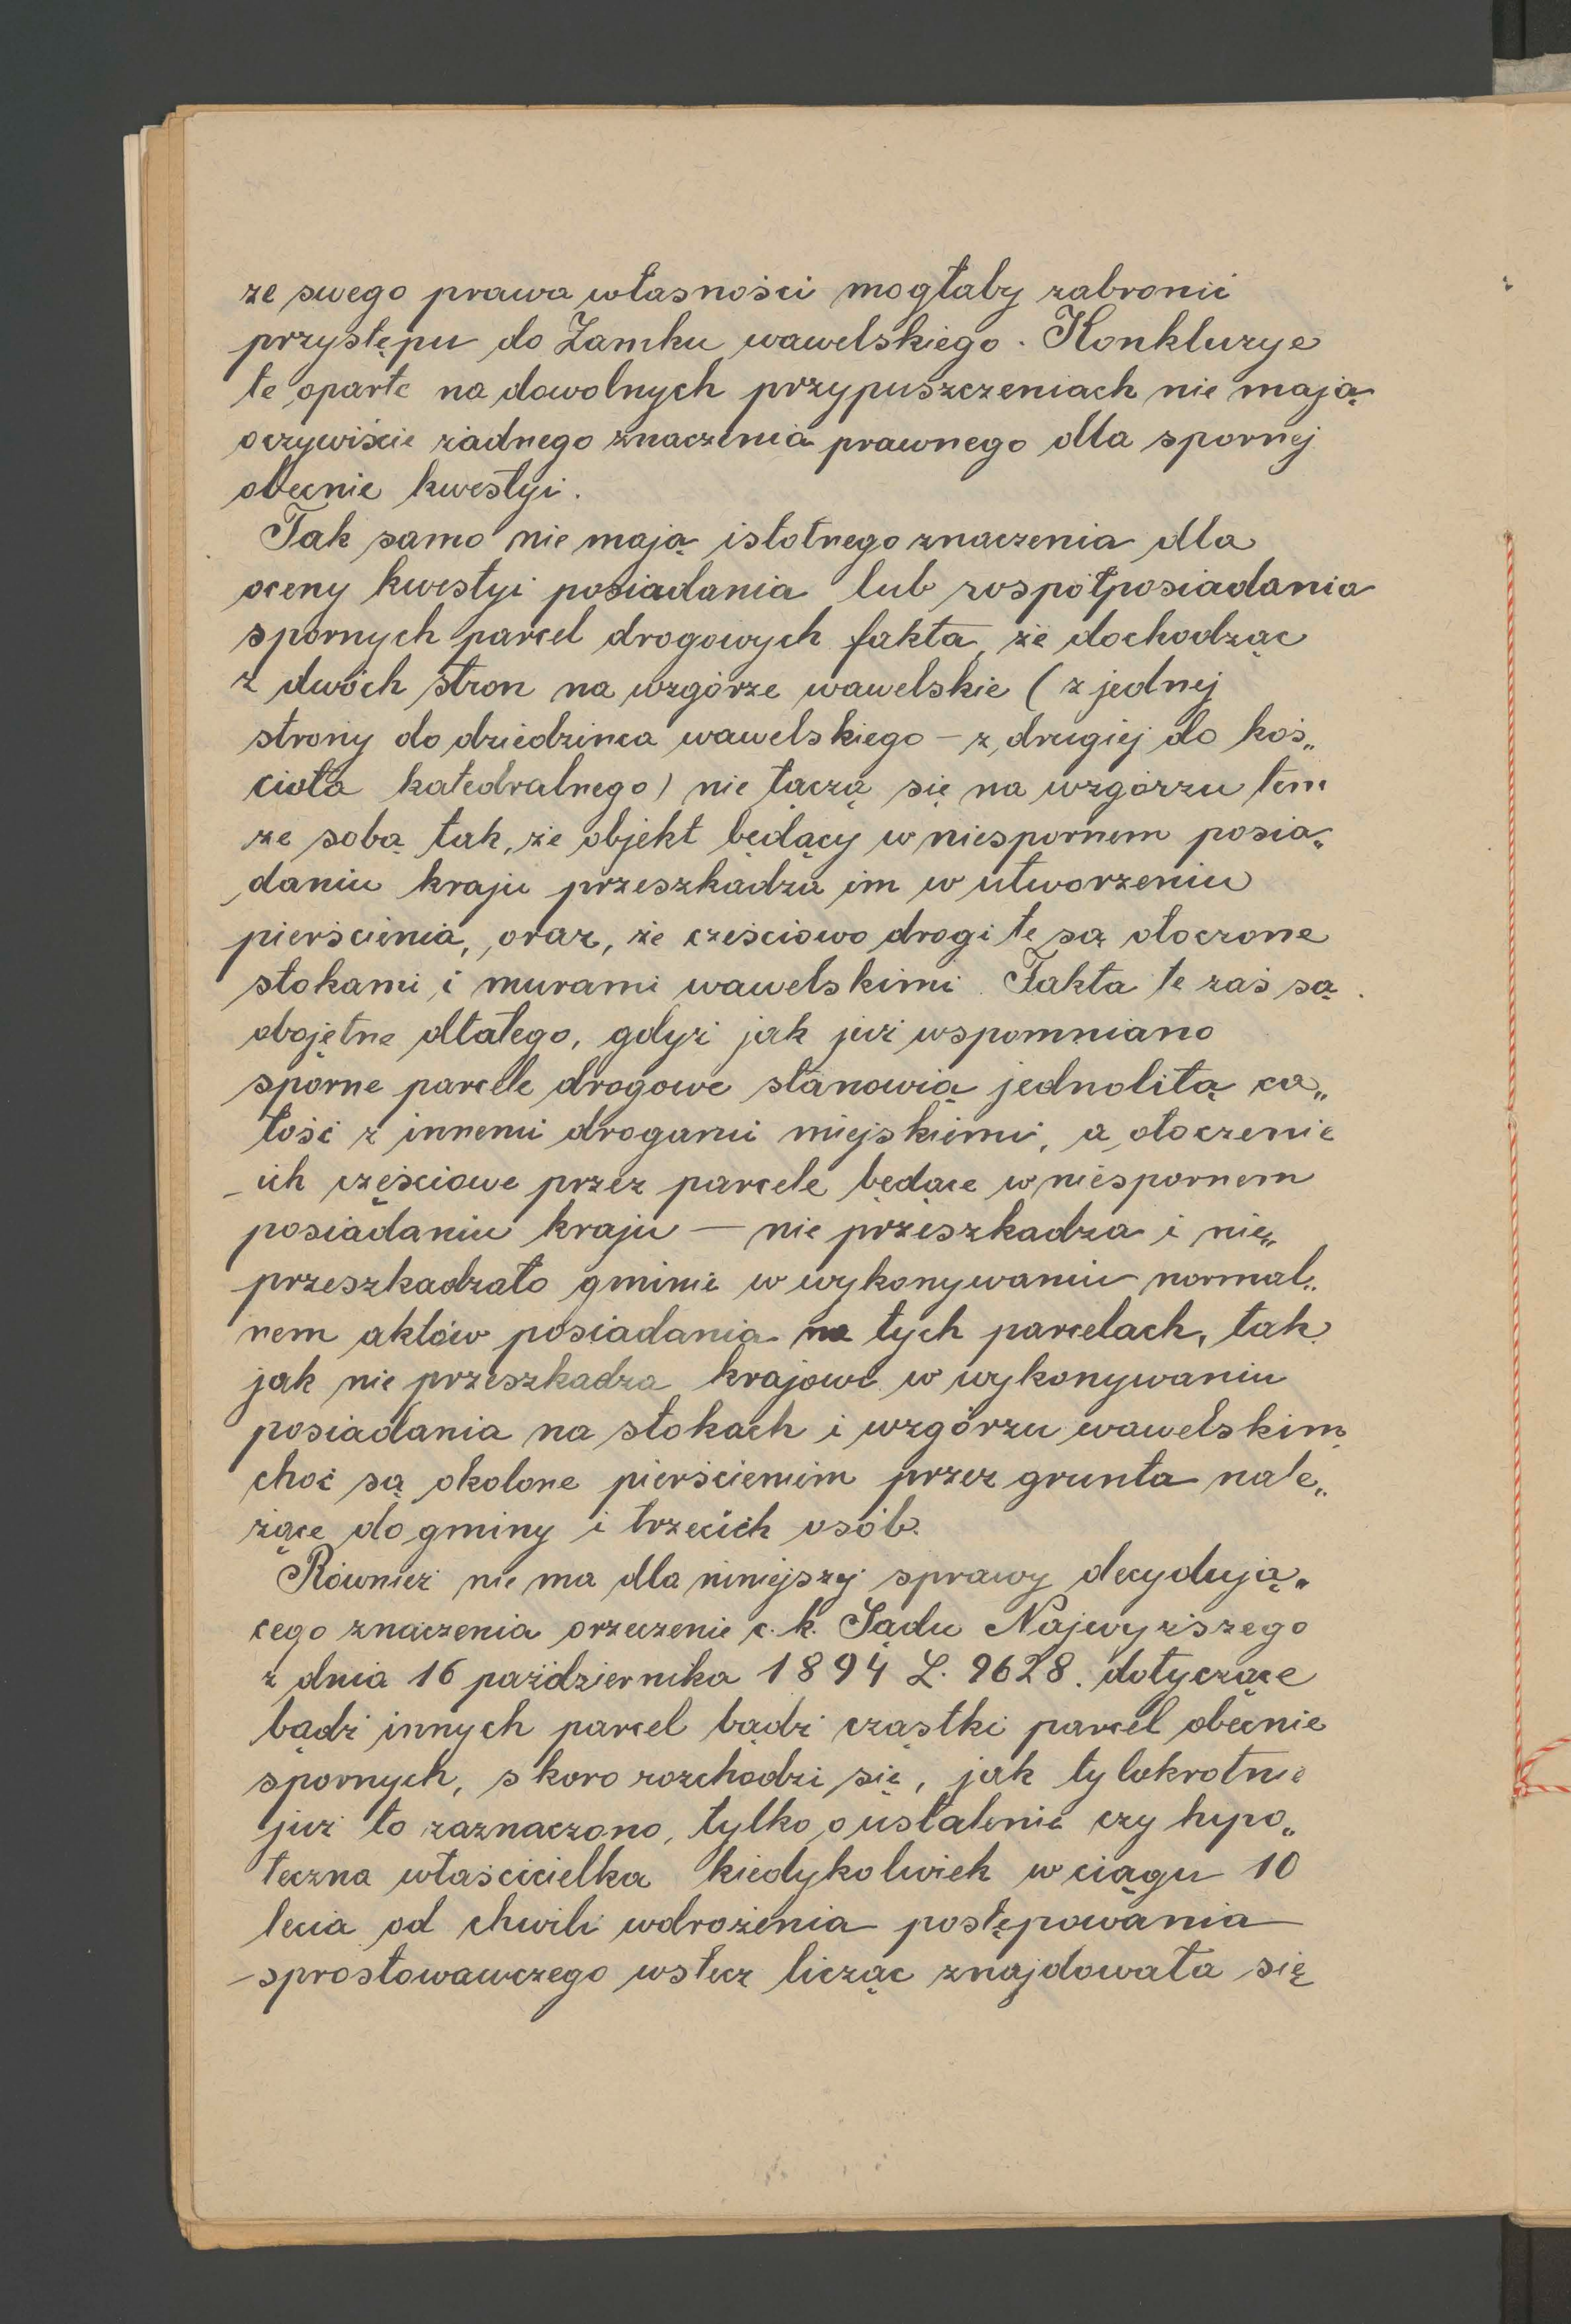 ze swego prawa własności mogłaby zabronić
przystępu do Zamku wawelskiego. Konkluzye
te oparte na dowolnych przypuszczeniach nie mają
oczywiście żadnego znaczenia prawnego dla spornej
obecnie kwestyi.
Tak samo nie mają istotnego znaczenia dla
oceny kwestyi posiadania lub współposiadania
spornych parcel drogowych fakta, że dochodząc
z dwóch stron na wzgórze wawelskie (z jednej
strony do dziedzińca wawelskiego – z drugiej do koś„
cioła katedralnego) nie łączą się na wzgórzu tem
ze sobą tak, że objekt będący w niespornem posia„
daniu kraju przeszkadza im w utworzeniu
pierścienia, oraz, że cześciowo drogi te są otoczone
stokami i murami wawelskimi. Fakta te zaś są
obojętne dlatego, gdyż jak już wspomniano
sporne parcele drogowe stanowią jednolitą ca„
łość z innemi drogami miejskiemi, a otoczenie
ich częściowe przez parcele będące w niespornem
posiadaniu kraju — nie przeszkadza i nie„
przeszkadzało gminie w wykonywaniu normal„
nem aktów posiadania na tych parcelach, tak
jak nie przeszkadza krajowi w wykonywaniu
posiadania na stokach i wzgórzu wawelskim
choć są okolone pierścieniem przez grunta nale„
żące do gminy i trzecich osób.
Również nie ma dla niniejszej sprawy decydują„
cego znaczenia orzeczenie c. k. Sądu Najwyższego
z dnia 16 października 1894 L. 9628. dotyczące
bądź innych parcel bądź cząstki parcel obecnie
spornych, skoro rozchodzi się, jak tylokrotnie
już to zaznaczono, tylko o ustalenie czy hypo„
teczna właścicielka kiedykolwiek w ciągu 10
lecia od chwili wdrożenia postępowania
sprostowawczego wstecz licząc znajdowała się